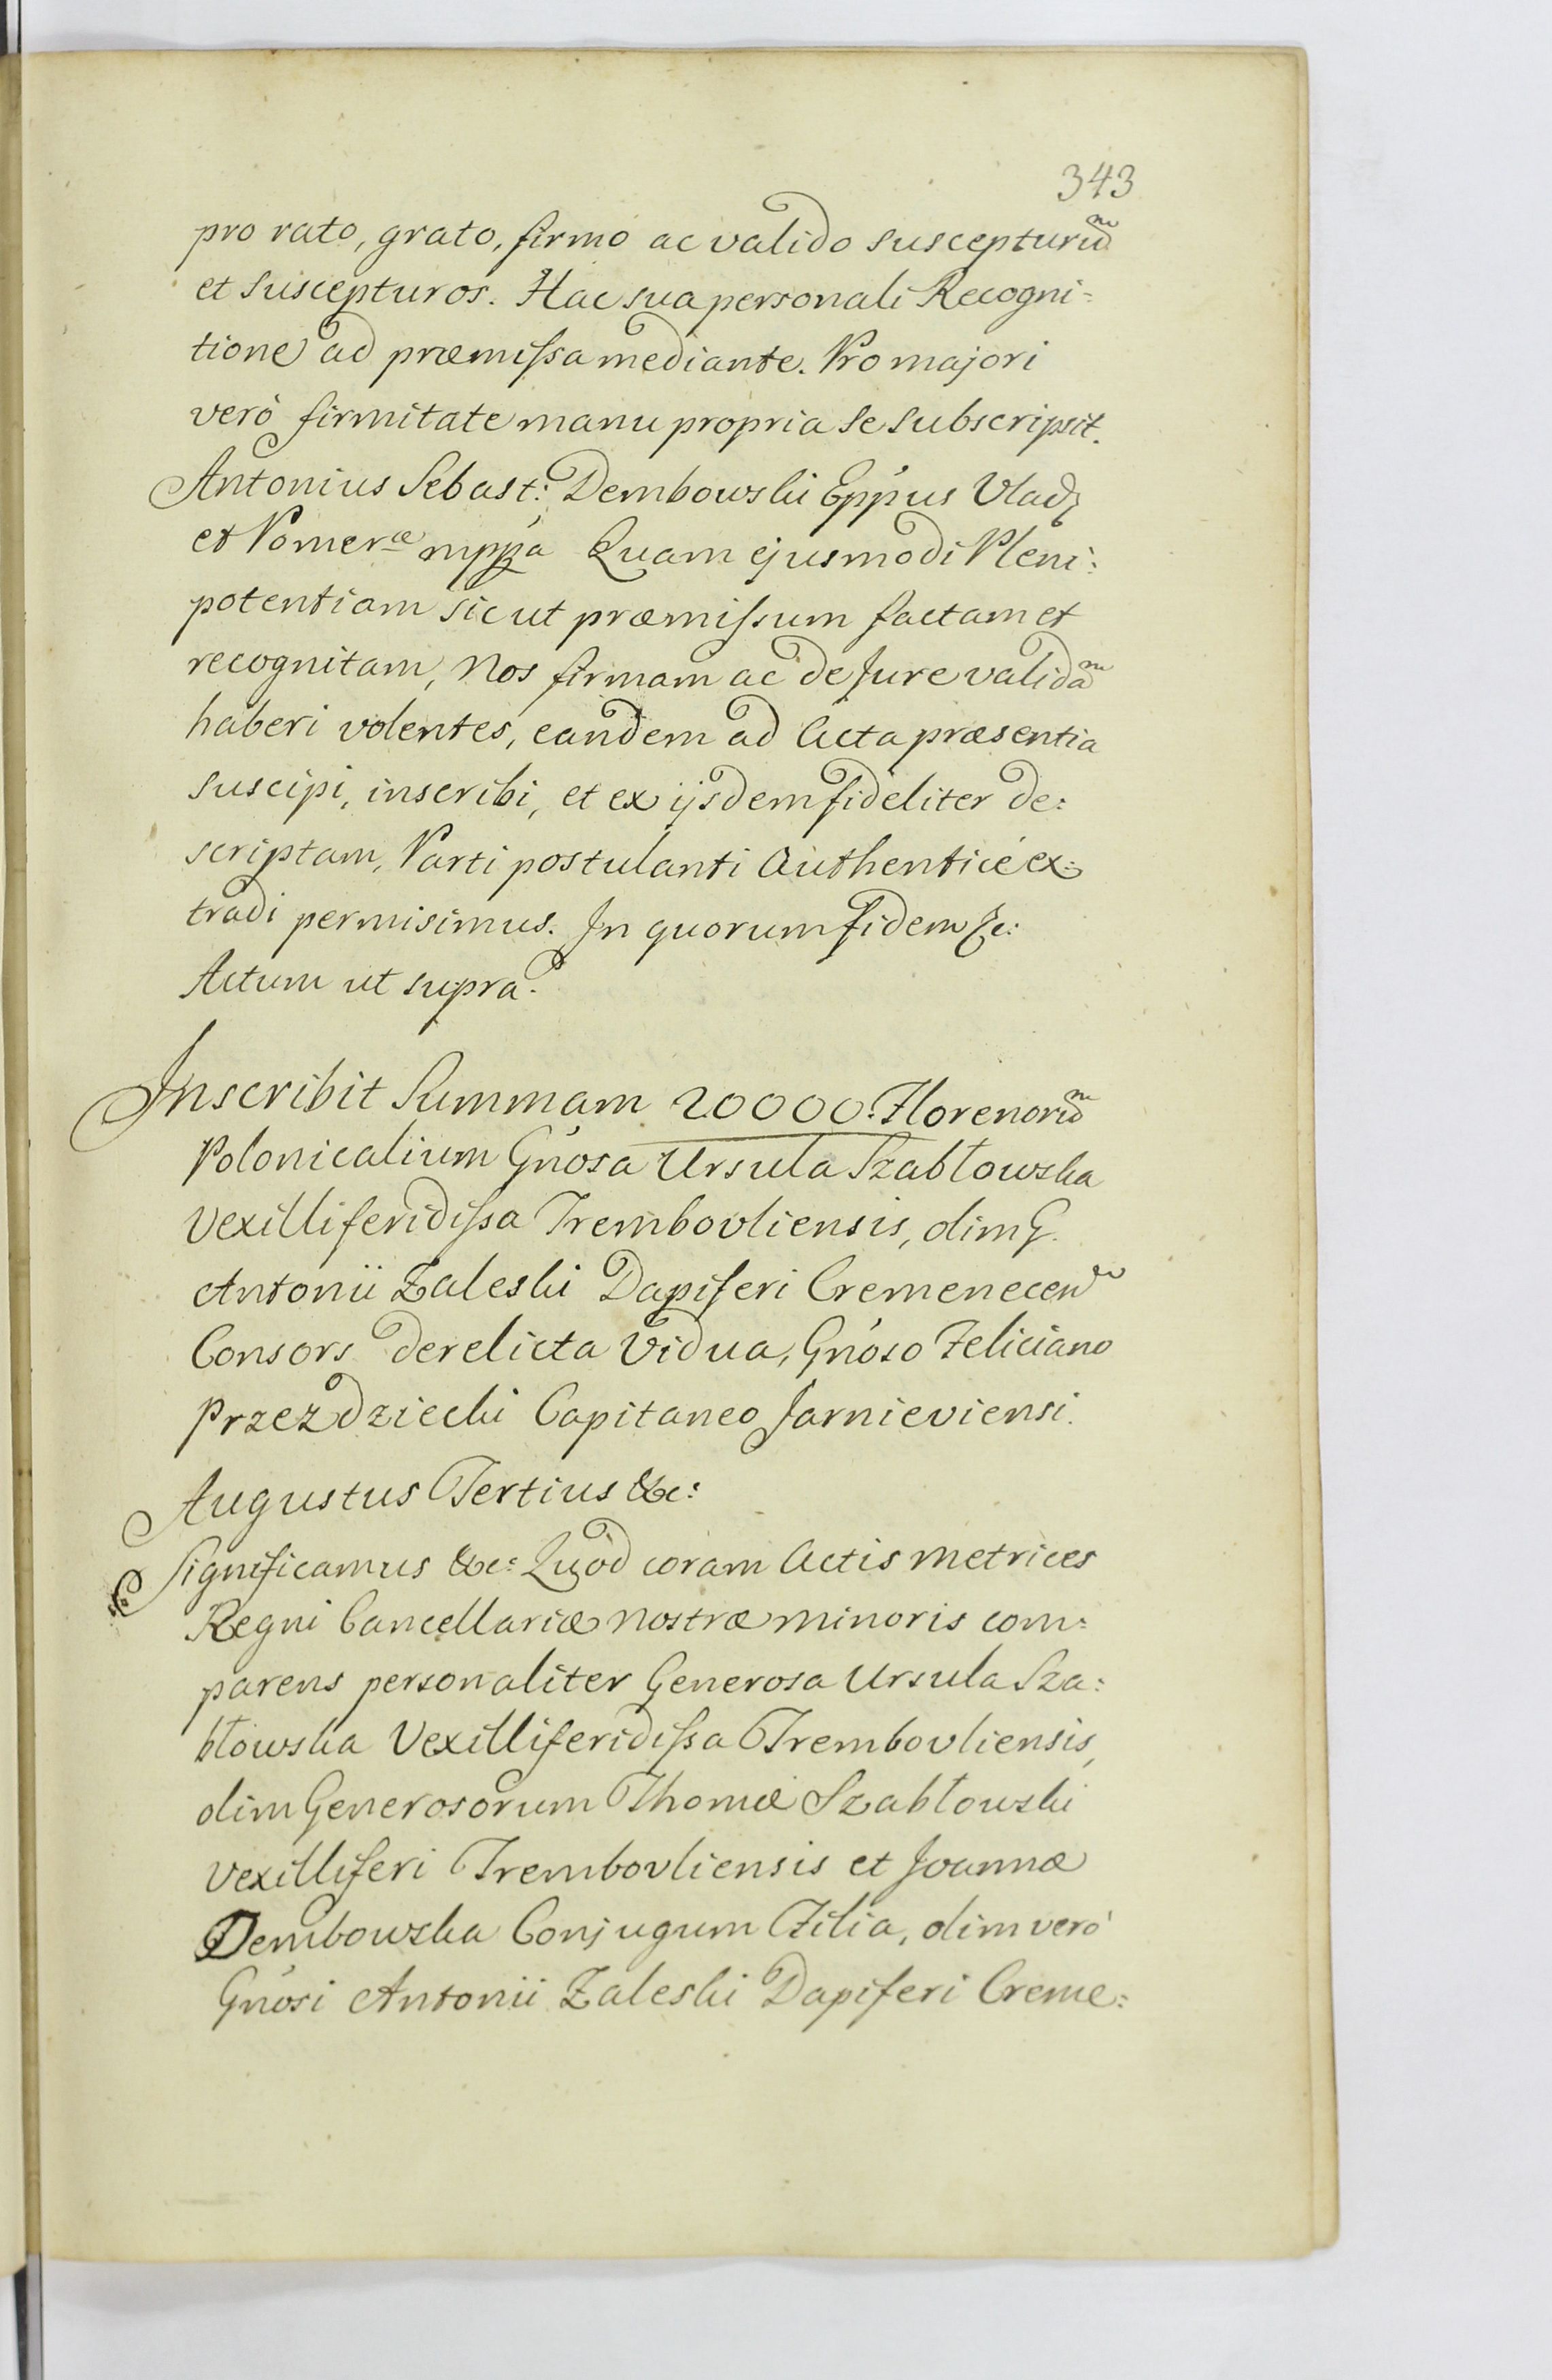 343
pro rato, grato, firmo ac valido suscepturũ
et suscepturos. Hac sua personali Recogni=
tione ad præmissa mediante. Pro majori
verò firmitate manu propria se subscripsit.
Antonius Sebast: Dembowski Eppus Vlad:
et Pomer:æ mppa Quam ejusmodi Pleni:
potentiam sicut præmissum factam et
recognitam, Nos firmam ac de Jure validã
haberi volentes, eandem ad Acta præsentia
suscipi, inscribi, et ex ijsdem fideliter de:
scriptam, Parti postulanti Authenticè ex:
tradi permisimus. In quorum fidem &c:
Actum ut supra.
Inscribit Summam 20000. Florenorũ
Polonicalium Gnosa Ursula Szabłowska
Vexilliferidissa Trembovliensis, olim G.
Antonii Zaleski Dapiferi Cremenecen
Consors derelicta Vidua, Gnoso Feliciano
Przezdziecki Capitaneo Jarnieviensi.
Augustus Tertius &c:
Significamus &c: Quod coram Actis Metrices
Regni Cancellariæ nostræ minoris com:
parens personaliter Generosa Ursula Sza:
błowska Vexilliferidissa Trembovliensis,
olim Generosorum Thomæ Szabłowski
Vexilliferi Trembovliensis et Joannæ
Dembowska Conjugum Filia, olim verò
Gnosi Antonii Zaleski Dapiferi Creme: